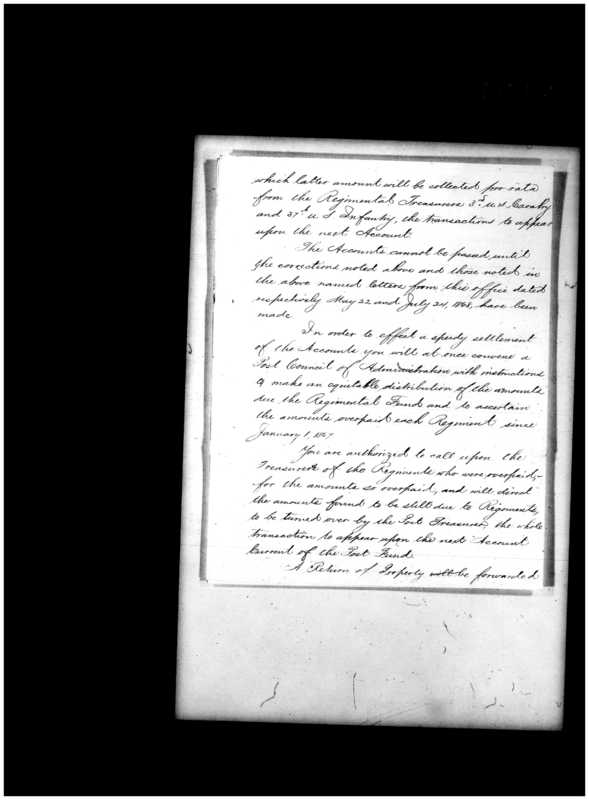 which latter amount will be collected pro rata
from the Regimental Treasurers 3d U.S. Cavalry
and 37th U S Infantry, the transactions to appear
upon the next Account.
The Accounts cannot be passed until
the corrections noted above and those noted in
the above named letters from this office dated
respectively May 22 and July 24, 1868, have been
made.
In order to effect a speedy settlement
of the Accounts you will at once convene a
Post Council of Administration with instructions
to make an equitable distribution of the amounts
due the Regimental Fund and to ascertain
the amounts overpaid each Regiment since
January 1, 1867
You are authorized to call upon the
Treasurers of the Regiments who were overpaid,
for the amounts so overpaid, and will direct
the amounts found to be still due to Regiments,
to be turned over by the Post Treasurer, the whole
transaction to appear upon the next Account
Current of the Post Fund.
A Return of Property will be forwarded